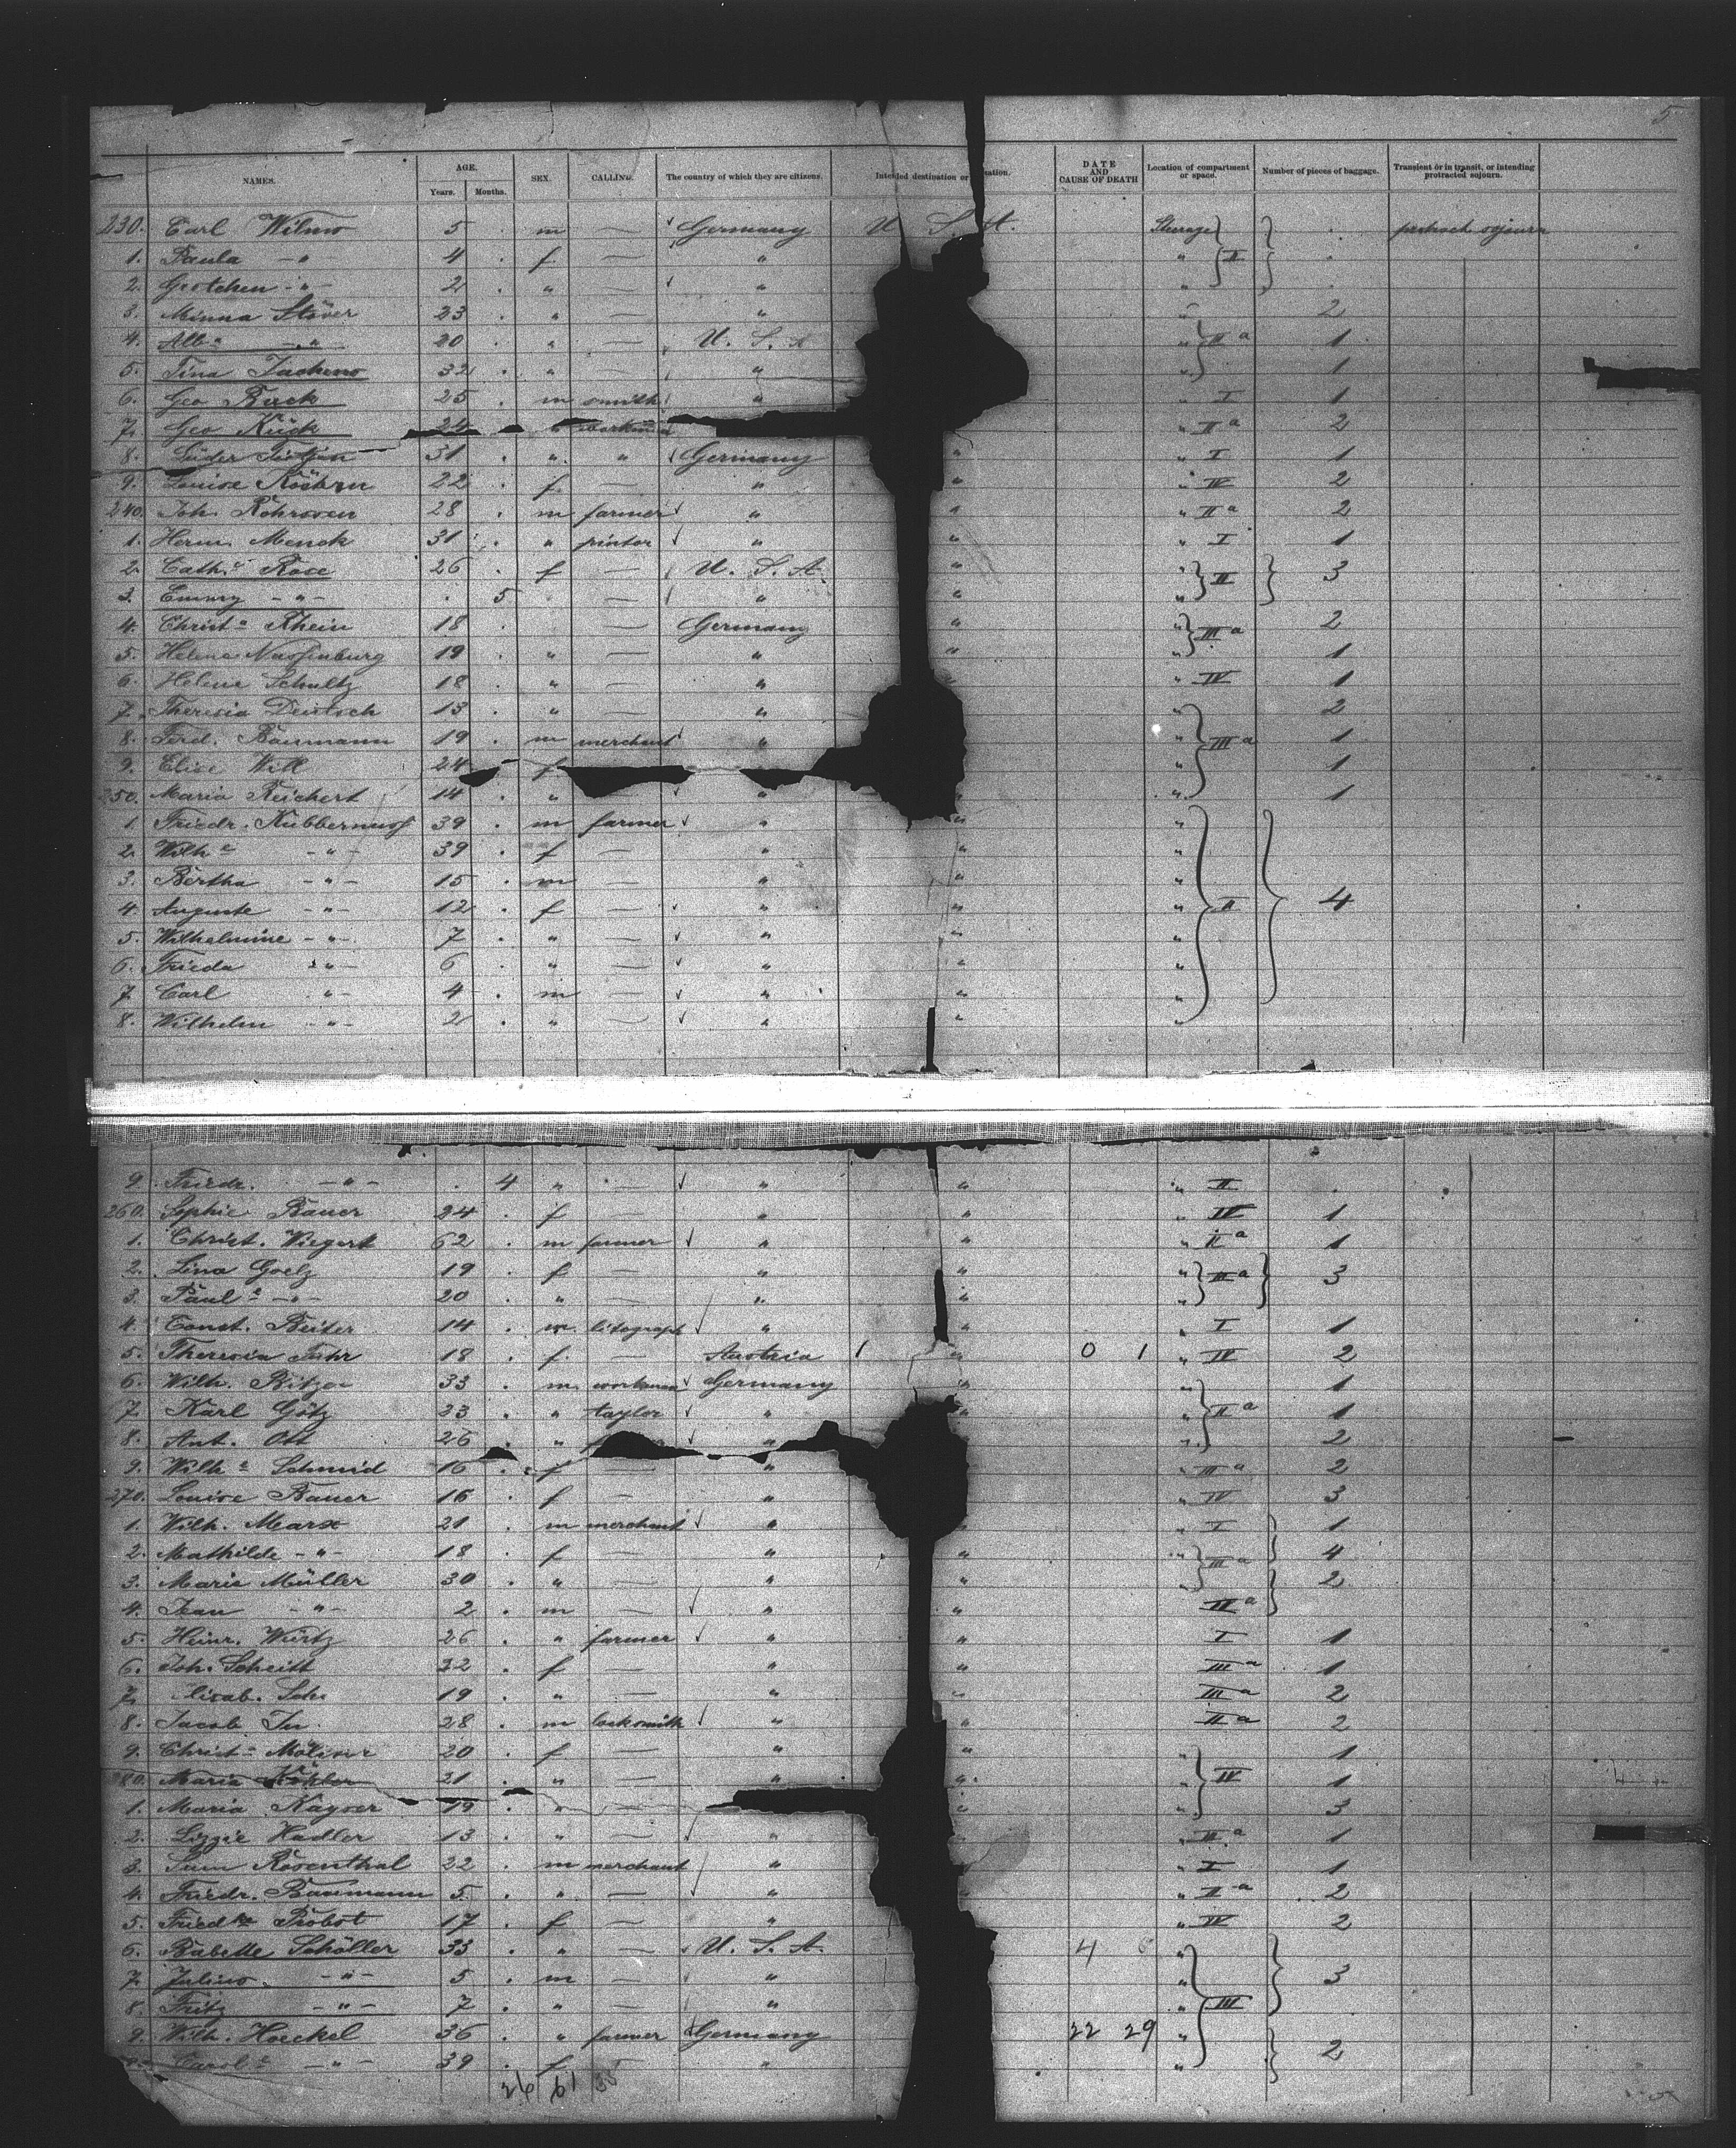 5
NAMES. AGE. Years. Months. SEX. CALLING. The country of which they are citizens. Intended destination or ation. DATE AND CAUSE OF DEATH Location of compartment or space. Number of pieces of baggage. Transient or in transit, or intending protracted sojourn.
230. Carl Wilms 5 . m — Germany U. S. A. Steerage .
1. Paula -"- 4 . f — " " II .
2. Gretchen -"- 2 . " — " " .
3. Minna Stöver 23 . " — " " 2
4. Alb.a -"- 20 . " — U. S. A " IIa 1
5. Tina 32 . " — " " 1
6. Geo Buck 25 . m smith " " I 1
7. Geo Kück " workman " IIa 2
8. Lüder Tietjen 31 . " " Germany " " I 1
9. Louise 22 . f — " " " IV 2
240. Joh. Rohrssen 28 . m farmer " " " IIa 2
1. Herm. Menck 31 . " " " " I 1
2. Cath.e Rose 26 . f — U. S. A. " " II 3
3. Emmy -"- . 5 — " " "
4. Christ.e Rhein 18 . — Germany " " IIIa 2
5. Helene 19 . " — " " " 1
6. Helene Schultz 18 . " — " " IV 1
7. Theresia Deutsch 13 . " — " " 2
8. Ferd. Baumann 19 . m merchant " " IIIa 1
9. Elise Will 24 f " " 1
250. Maria Reichert 14 . " " " " 1
1. Friedr. 39 . m farmer " " "
2. Wilh.e -"- 39 . f — " " "
3. Bertha -"- 15 . m — " " "
4. Auguste -"- 12 . f — " " " II 4
5. Wilhelmine -"- 7 . " — " " "
6. Frieda -"- 6 . " — " " "
7. Carl -"- 4 . m — " " "
8. Wilhelm -"- 2 . " — " " "
9. Friedr. -"- . 4 " — " " " II .
260. Sophie Bauer 24 . f — " " " IV 1
1. Christ. Wiegert 62 . m farmer " " " IIa 1
2. Lina Goelz 19 . f — " " " IIIa 3
3. Paul.e -"- 20 . " — " " "
4. Const. Beiter 14 . m litograph " " " I 1
5. Theresia Fuhr 18 . f — Austria 1 " 0 1 " IV 2
6. Wilh. Bitzer 33 . m workman Germany " " 1
7. Karl Götz 23 . " taylor " " " IIa 1
8. Ant. Ott 26 . " " " 2
9. Wilh.e Schmid 16 . f — " " IIIa 2
270. Louise Bauer 16 . f — " " IV 3
1. Wilh. Marx 21 . m merchant " " " I 1
2. Mathilde -"- 18 . f — " " " IIIa 4
3. Marie Müller 30 . " — " " " 2
4. Jean -"- 2 . m — " " IIa
5. Heinr. Wurtz 26 . " farmer " " I 1
6. Joh. Scheitt 22 . f — " " IIIa 1
7. 19 . " — " " IIIa 2
8. Jacob 28 . m locksmith " " IIa 2
9. Christ.e 20 . f — " " " 1
280. Maria Köhler 21 . " — " " " IV 1
1. Maria Kayser 19 " — " " " 3
2. Lizzie Hadler 13 . " — " " " IIa 1
3. Rosenthal 22 . m merchant " " I 1
4. Friedr. Baumann 5 . " — " " IIa 2
5. Fried.ke Probst 17 . f — " " IV 2
6. Babette Schöller 33 . " — U. S. A. 4 "
7. Julius -"- 5 . m — " " 3
8. Fritz -"- 7 . " — " " III
9. Wilh. Hoeckel 36 . " farmer Germany 22 29 "
Carol.e -"- 39 . f " " 2
26 61